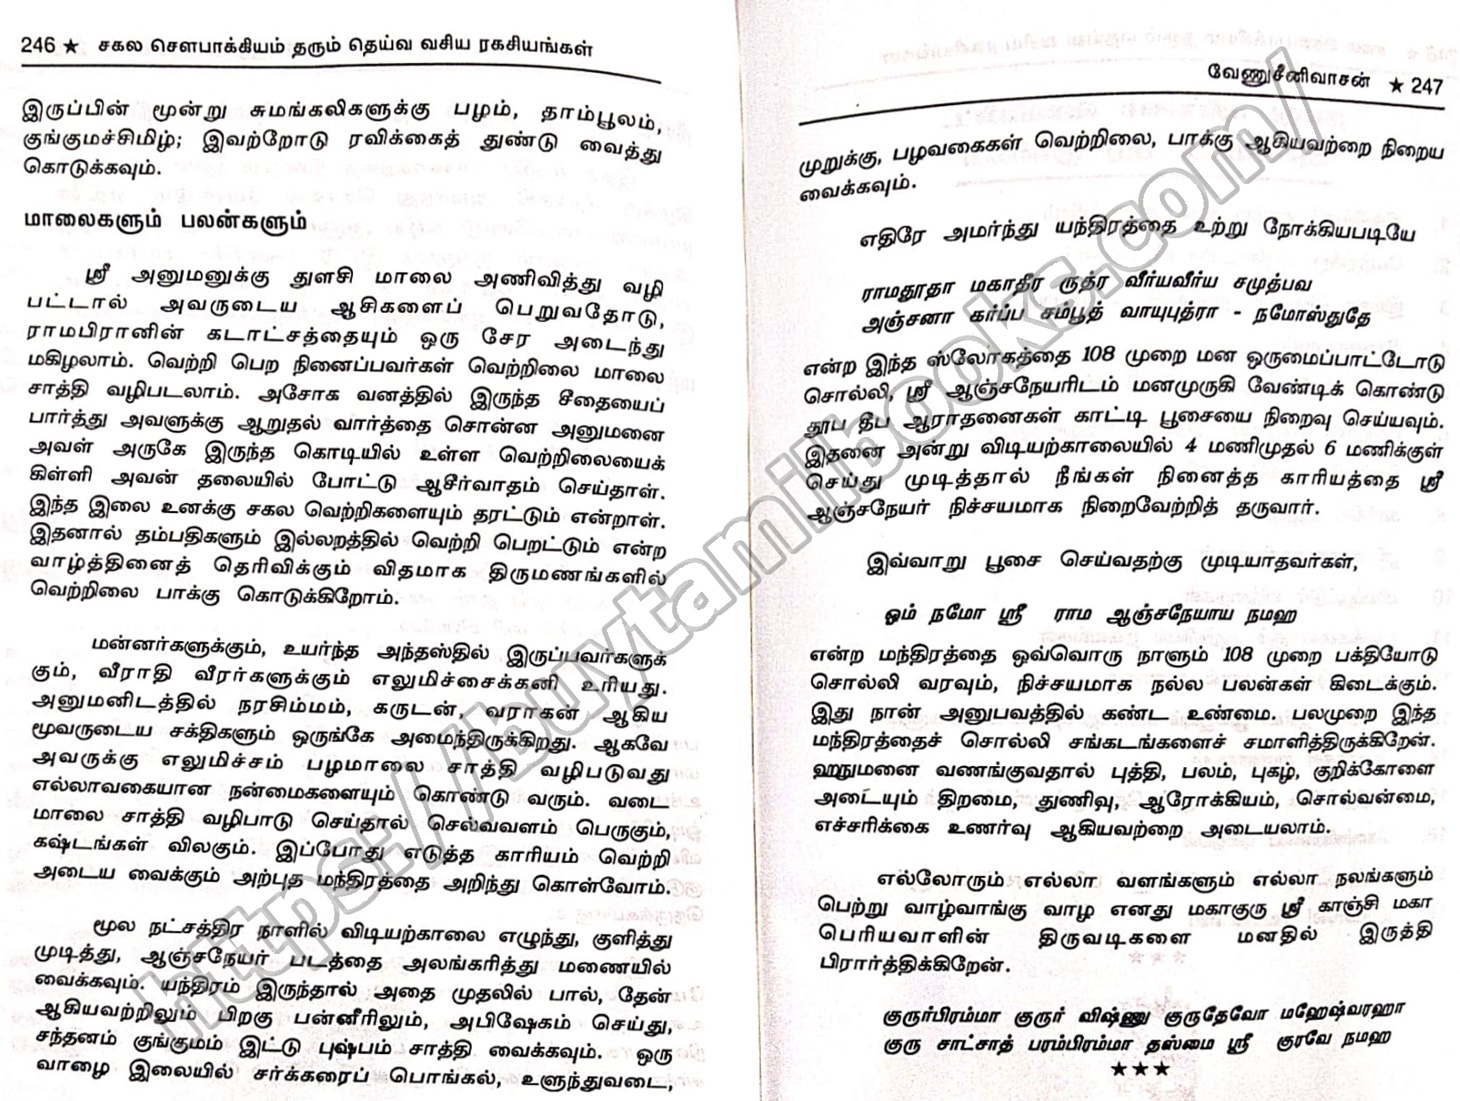 246 ★ சகல சௌபாக்கியம் தரும் தெய்வ வசிய ரகசியங்கள்
இருப்பின் மூன்று சுமங்கலிகளுக்கு பழம், தாம்பூலம்,
குங்குமச்சிமிழ்; இவற்றோடு ரவிக்கைத் துண்டு வைத்து
கொடுக்கவும்.
மாலைகளும் பலன்களும்
ஸ்ரீ அனுமனுக்கு துளசி மாலை அணிவித்து வழி
பட்டால் அவருடைய ஆசிகளைப் பெறுவதோடு,
ராமபிரானின் கடாட்சத்தையும் ஒரு சேர அடைந்து
மகிழலாம். வெற்றி பெற நினைப்பவர்கள் வெற்றிலை மாலை
சாத்தி வழிபடலாம். அசோக வனத்தில் இருந்த சீதையைப்
பார்த்து அவளுக்கு ஆறுதல் வார்த்தை சொன்ன அனுமனை
அவள் அருகே இருந்த கொடியில் உள்ள வெற்றிலையைக்
கிள்ளி அவன் தலையில் போட்டு ஆசீர்வாதம் செய்தாள்.
இந்த இலை உனக்கு சகல வெற்றிகளையும் தரட்டும் என்றாள்.
இதனால் தம்பதிகளும் இல்லறத்தில் வெற்றி பெறட்டும் என்ற
வாழ்த்தினைத் தெரிவிக்கும் விதமாக திருமணங்களில்
வெற்றிலை பாக்கு கொடுக்கிறோம்.
மன்னர்களுக்கும், உயர்ந்த அந்தஸ்தில் இருப்பவர்களுக்
கும், வீராதி வீரர்களுக்கும் எலுமிச்சைக்கனி உரியது.
அனுமனிடத்தில் நரசிம்மம், கருடன், வராகன் ஆகிய
மூவருடைய சக்திகளும் ஒருங்கே அமைந்திருக்கிறது. ஆகவே
அவருக்கு எலுமிச்சம் பழமாலை சாத்தி வழிபடுவது
எல்லாவகையான நன்மைகளையும் கொண்டு வரும். வடை
மாலை சாத்தி வழிபாடு செய்தால் செல்வவளம் பெருகும்,
கஷ்டங்கள் விலகும். இப்போது எடுத்த காரியம் வெற்றி
அடைய வைக்கும் அற்புத மந்திரத்தை அறிந்து கொள்வோம்.
மூல நட்சத்திர நாளில் விடியற்காலை எழுந்து, குளித்து
முடித்து, ஆஞ்சநேயர் படத்தை அலங்கரித்து மணையில்
வைக்கவும். யந்திரம் இருந்தால் அதை முதலில் பால், தேன்
ஆகியவற்றிலும் பிறகு பன்னீரிலும், அபிஷேகம் செய்து,
சந்தனம் குங்குமம் இட்டு புஷ்பம் சாத்தி வைக்கவும். ஒரு
வாழை இலையில் சர்க்கரைப் பொங்கல், உளுந்துவடை,
வேணுசீனிவாசன் ★ 247
முறுக்கு, பழவகைகள் வெற்றிலை, பாக்கு ஆகியவற்றை நிறைய
வைக்கவும்.
எதிரே அமர்ந்து யந்திரத்தை உற்று நோக்கியபடியே
ராமதூதா மகாதீர ருத்ர வீர்யவீர்ய சமுத்பவ
அஞ்சனா கர்ப்ப சம்பூத் வாயுபுத்ரா - நமோஸ்துதே
என்ற இந்த ஸ்லோகத்தை 108 முறை மன ஒருமைப்பாட்டோடு
சொல்லி, ஸ்ரீ ஆஞ்சநேயரிடம் மனமுருகி வேண்டிக் கொண்டு
தூப தீப ஆராதனைகள் காட்டி பூசையை நிறைவு செய்யவும்.
இதனை அன்று விடியற்காலையில் 4 மணிமுதல் 6 மணிக்குள்
செய்து முடித்தால் நீங்கள் நினைத்த காரியத்தை ஸ்ரீ
ஆஞ்சநேயர் நிச்சயமாக நிறைவேற்றித் தருவார்.
இவ்வாறு பூசை செய்வதற்கு முடியாதவர்கள்,
ஓம் நமோ ஸ்ரீ ராம ஆஞ்சநேயாய நமஹ
என்ற மந்திரத்தை ஒவ்வொரு நாளும் 108 முறை பக்தியோடு
சொல்லி வரவும், நிச்சயமாக நல்ல பலன்கள் கிடைக்கும்.
இது நான் அனுபவத்தில் கண்ட உண்மை. பலமுறை இந்த
மந்திரத்தைச் சொல்லி சங்கடங்களைச் சமாளித்திருக்கிறேன்.
ஹநுமனை வணங்குவதால் புத்தி, பலம், புகழ், குறிக்கோளை
அடையும் திறமை, துணிவு, ஆரோக்கியம், சொல்வன்மை,
எச்சரிக்கை உணர்வு ஆகியவற்றை அடையலாம்.
எல்லோரும் எல்லா வளங்களும் எல்லா நலங்களும்
பெற்று வாழ்வாங்கு வாழ எனது மகாகுரு ஸ்ரீ காஞ்சி மகா
பெரியவாளின் திருவடிகளை மனதில் இருத்தி
பிரார்த்திக்கிறேன்.
குருர்பிரம்மா குருர் விஷ்ணு குருதேவோ மஹேஷ்வரஹா
குரு சாட்சாத் பரம்பிரம்மா தஸ்மை ஸ்ரீ குரவே நமஹ
★★★
https://buytamilbooks.com/